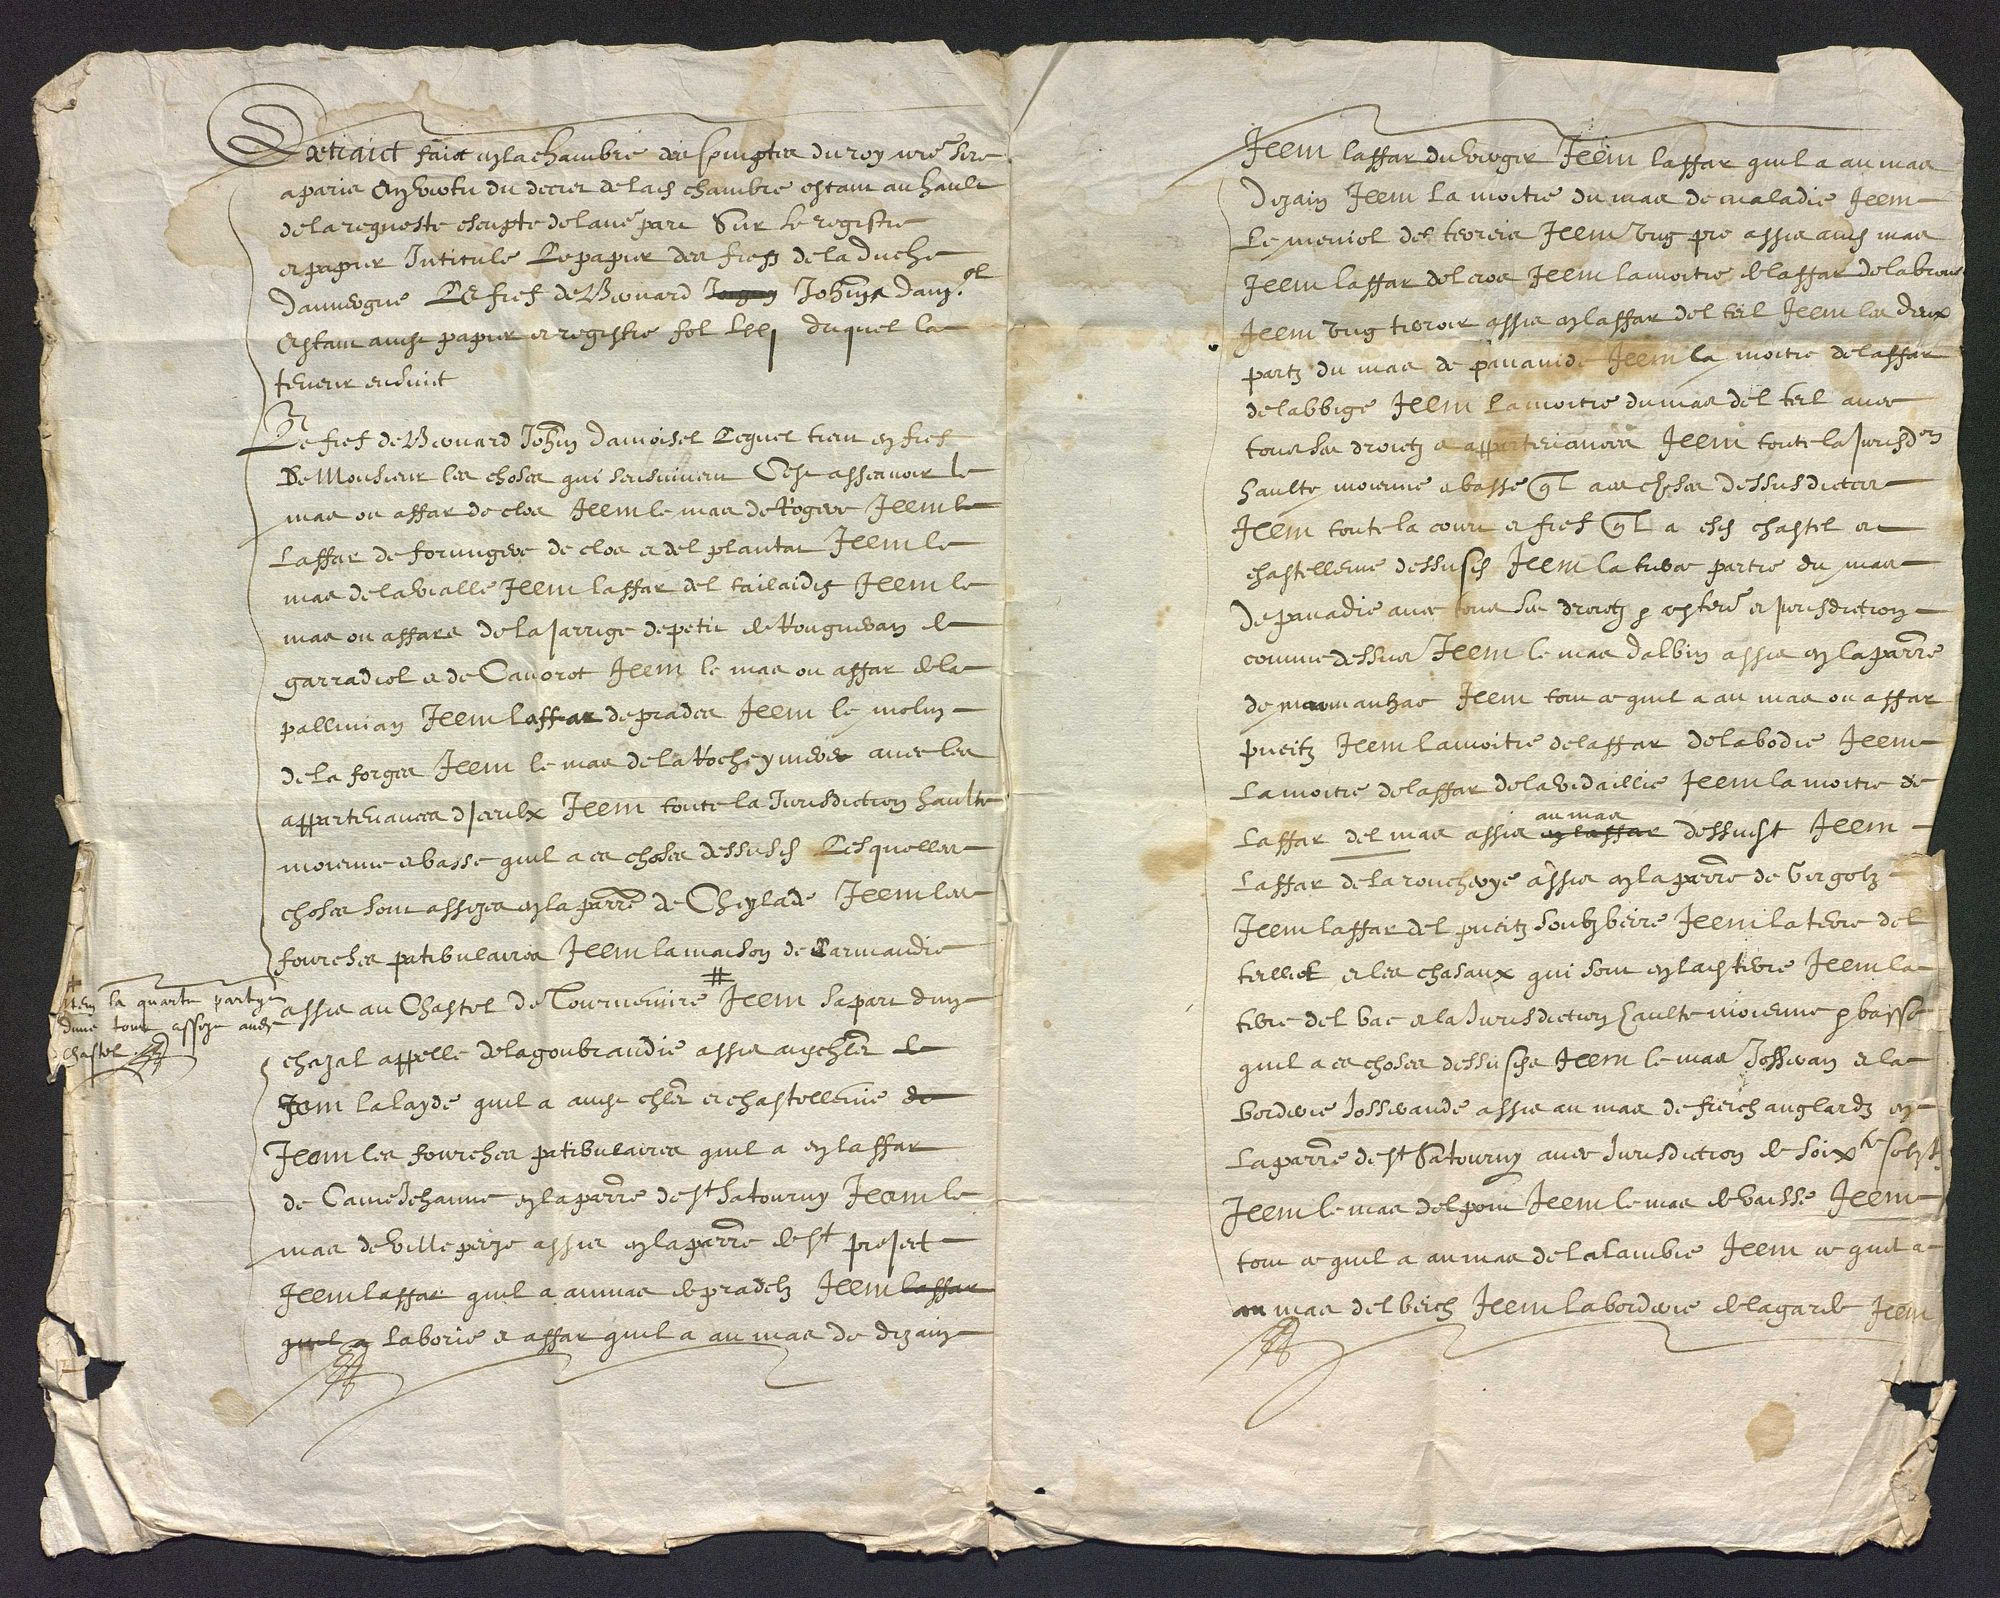 Extraict faict en la chambre des comptes du roy nre sire
a paris en vertu du decret de lad chambre estant au hault
de la requeste escripte de laue part Sur le registre
et papier Intitule Le papier des fiefz de la duche
dauuergne Le fief de Beraud Johan dam.el
Estant aud papier et registre fol duquel la
teneur ensuict
Le fief de Beraud Johan Damoisel Lequel tient en fief
De Monsieur les choses qui sensuiuent Cest asscauoir le
mas ou affar de clos Item le mas de Rogere Item le
Laffar de de clos et del plantat Item le
mas de la vialle Item laffar del Item le
mas ou affars de la Jarrige de petit de
garradiol et de Cauorot Item le mas ou affar de la
Item laffar de prades Item le molin
de la forges Item le mas de la Rocheymere auec les
appartenances diceulx Item toute la Jurisdiction haulte
moienne et basse quil a es choses dessusd Lesquelles
choses sont assizes en la parre de Cheylade Item les
fourches patibulaires Item la maison de Carmandie
assis au Chastel de Tournemire # Item sa part dun
# Item la quarte partye
dune tour assize aud
chastel
chazal appelle de la goubraudie assis aud chler
Item la layde quil a aud chler et chastellenie
Item les fourches patibulaires quil a en laffar
de Came Jehanne en la parre de st Satourny Item le
mas de Villepeize assis en la parre de st project
Item laffar quil a au mas de pradelz Item laffar
quil a Laborie et affar quil a au mas de dizain
Item laffar du verger Item laffar quil a au mas
Dezain Item La moitie du mas de maladie Item
Le meniol del Item Ung pre assis aud mas
Item laffar del cros Item la moitie de laffar de la
Item Ung terroir assis en laffar del teil Item les deux
partz du mas de Item la moitie de laffar
de labbige Item La moitie du mas del teil auec
tous ses droictz et appartenances Item toute la Jurisdon
haulte moienne et basse ql a es choses dessusdictes
Item toute la court et fief ql a esd chastel et
chastellenie dessusd Item la tierce partie du mas
De panadie auec tous ses droictz et Jurisdiction
comme dessus Item le mas dalbin assis en la parre
de marmanhac Item tout ce quil a au mas ou affar
pueitz Item la moitie de laffar de la bodie Item
La moitie de laffar de la vidaillie Item la moitie de
au mas
Laffar del mas assis en laffar dessusd Item
Laffar de la assis en la parre de Girgolz
Item laffar del pueitz Item la terre del
et les chasaux qui sont en lad terre Item la
terre del bac et la Jurisdiction haulte moienne et basse
quil a es choses dessusd Item le mas Josseran et la
borderie Josserande assis au mas de anglardz en
La parre de st Satourny auec Jurisdiction de soixte solz
Item le mas del pont Item le mas de vaisse Item
tout ce quil a au mas de lalambre Item ce quil a
au mas del beich Item la borderie de la garde Item